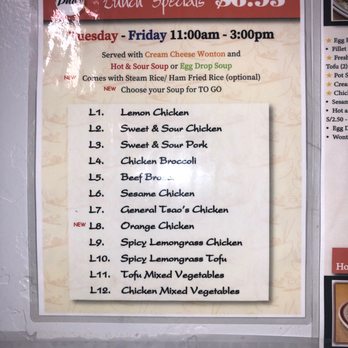 Lunch Specials $6.95
Tuesday - Friday 11:00am - 3:00pm
Served with Cream Cheese Wonton and
Hot & Sour Soup or Egg Drop Soup
NEW Comes with Steam Rice/ Ham Fried Rice (optional)
NEW Choose your Soup for TO GO
L1. Lemon Chicken
L2. Sweet & Sour Chicken
L3. Sweet & Sour Pork
L4. Chicken Broccoli
L5. Beef
L6. Sesame Chicken
L7. General Tsao's Chicken
NEW L8. Orange Chicken
L9. Spicy Lemongrass Chicken
L10. Spicy Lemongrass Tofu
L11. Tofu Mixed Vegetables
L12. Chicken Mixed Vegetables
Egg
Fillet
Tofu (2)
Pot S
S/2.50 -
Hot a
Egg D
Wont
Ho